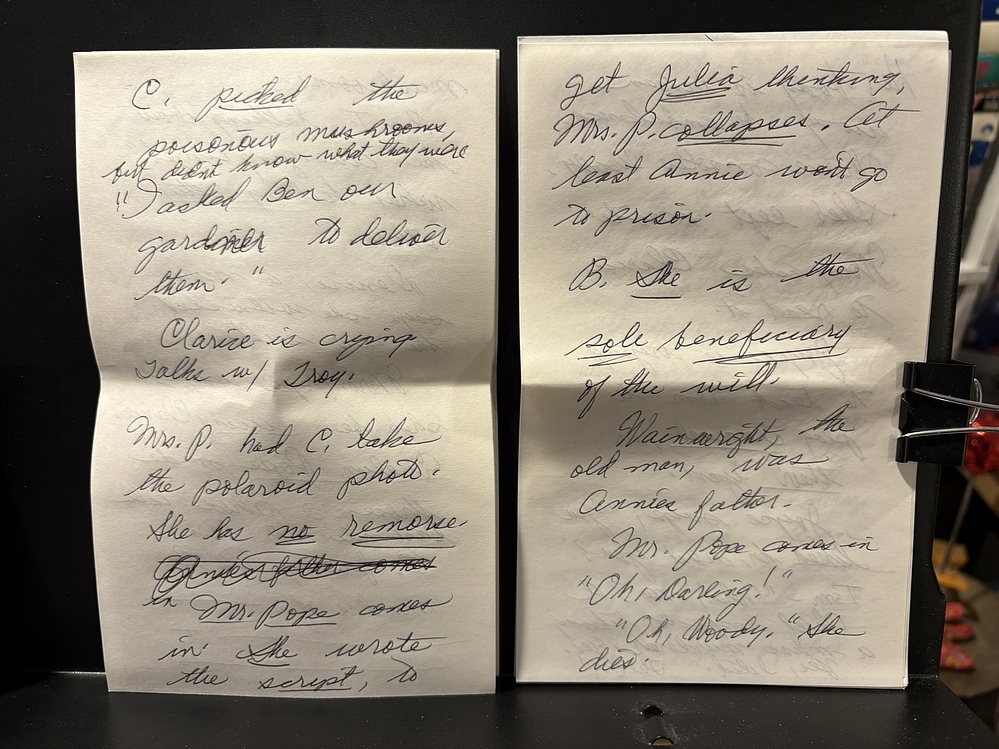 C. picked the
poisonous mushrooms,
but didn't know what they were
"I asked Ben our
gardiner to deliver
them."
Clarice is crying
Talks w/ Troy.
Mrs. P. had C. take
the polaroid photo.
She has no remorse
Annie's father comes
in Mr. Pope comes
in. She wrote
the script, to
get Julia thinking,
Mrs. P. collapses. At
least Annie won't go
to prison.
B. She is the
sole beneficiary
of the will.
Wainwright, the
old man, was
Annies father.
Mr. Pope comes in
"Oh, Darling!"
"Oh, Woody." She
dies.